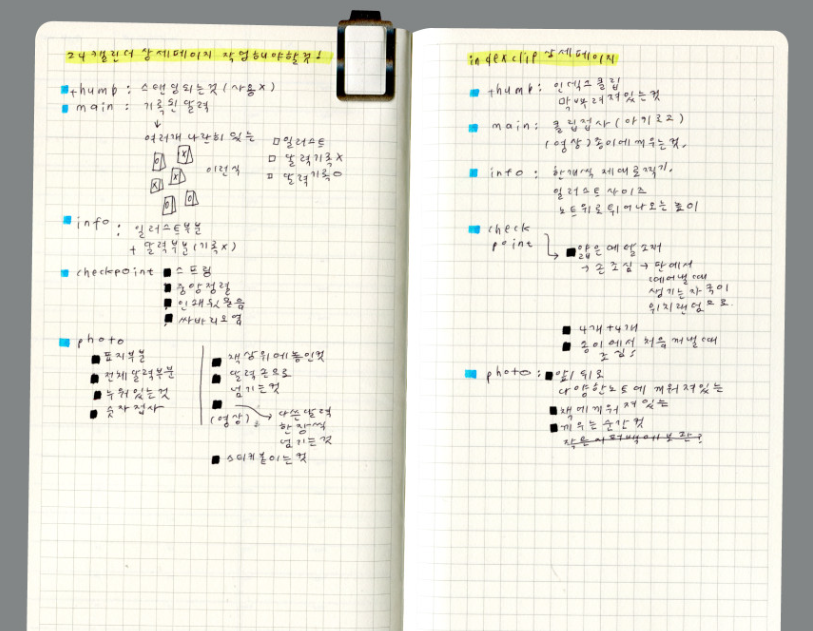 24 캘린더 상세페이지 작업해야할것!
thumb : 스탠딩되는것 (사용X)
main : 기록된 달력
↓
여러개 나란히 있는
이런식
□ 일러스트
□ 달력기록X
□ 달력기록O
info : 일러스트부분
+ 달력부분 (기록X)
checkpoint ■ 스프링
■ 중앙정렬
■ 인쇄
■ 싸바리오염
photo
■ 표지부분
■ 전체달력부분
■ 누워있는것
■ 숫자접사
■ 책상위에놓인컷
■ 달력손으로
넘기는것
■
(영상) 다쓴달력
한장씩
넘기는것
■ 스티커붙이는컷
index clip 상세페이지
thumb : 인덱스클립
막 뿌려져있는컷
main : 클립접사 (아키로고)
(영상) 종이에끼우는컷.
info : 한개씩 제대로찍기.
일러스트 사이즈
노트위로튀어나오는 높이
check
point
■ 얇은 메탈소재
→ 손조심 → 판에서
떼어낼때
생기는자국이
위치랜덤으로.
■ 4개+4개
■ 종이에서 처음꺼낼때
조심!
photo : ■ 앞/뒤로
다양한노트에 끼워져있는
■ 책에끼워져있는
■ 끼우는순간컷